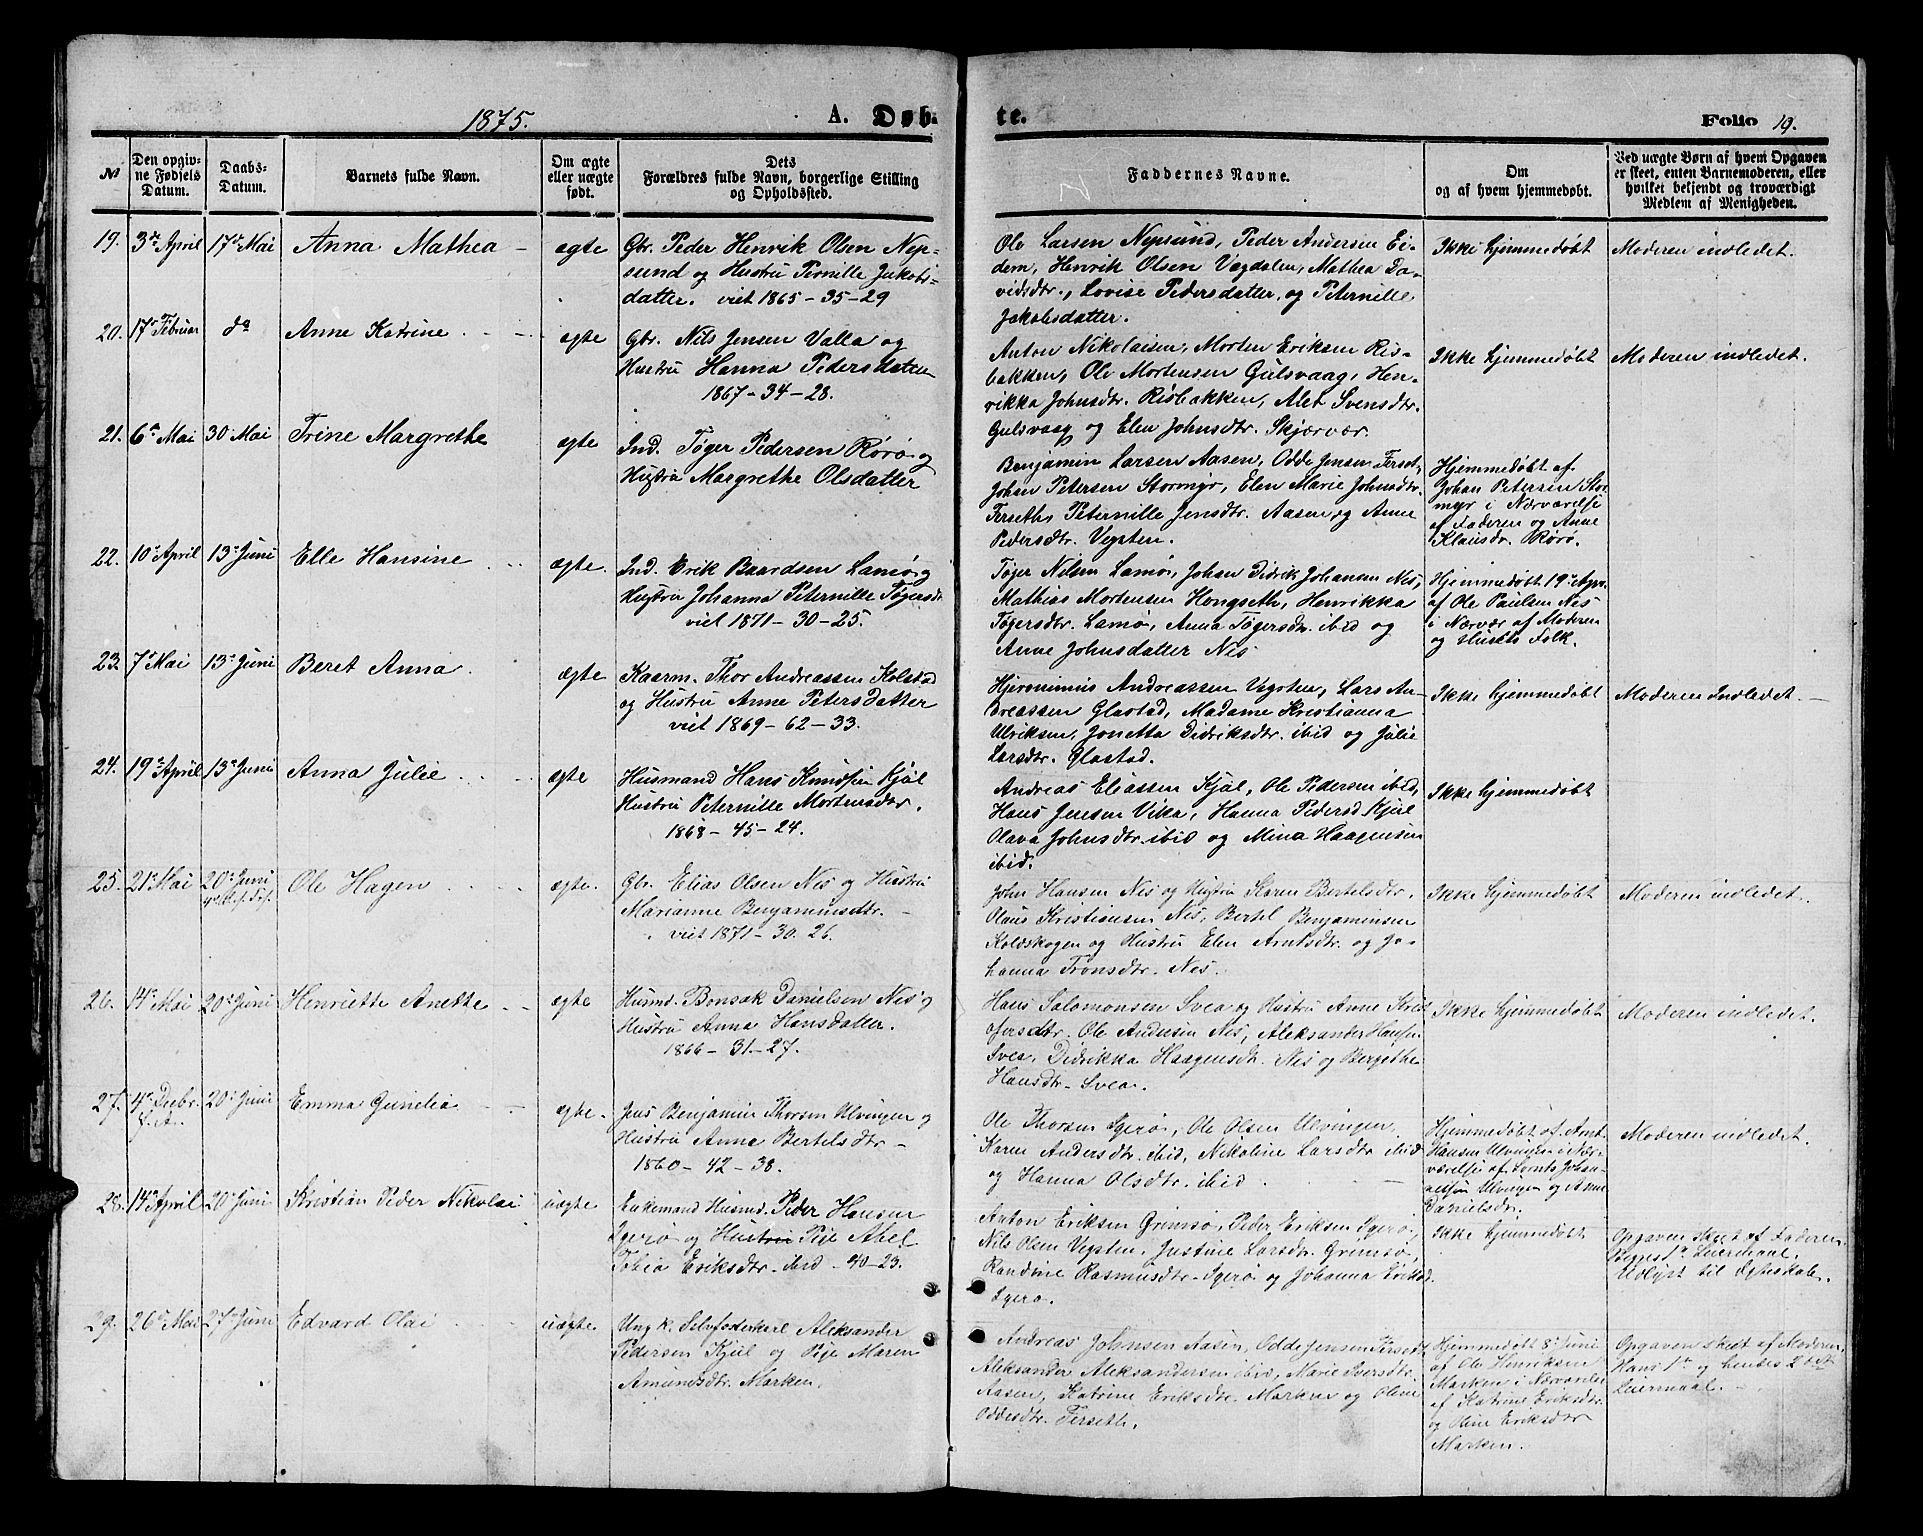 1875.
A. Døb-
te.
Folio 19.
№
Den opgiv-
ne Fødsels
Datum.
Daabs-
Datum.
Barnets fulde Navn.
Om ægte
eller uægte
født.
Dets
Forældres fulde Navn, borgerlige Stilling
og Opholdssted.
Faddernes Navne.
Om
og af hvem hjemmedøbt.
Ved uægte Børn af hvem Opgaven
er skeet, enten Barnemoderen, eller
hvilket bekjendt og troværdigt
Medlem af Menigheden.
19. 3die April 17de Mai Anna Mathea ægte
Gbr. Peder Henrik Olsen Nep-
sund og Hustru Pernille Jakobs-
datter. viet 1865-35-29
Ole Larsen Nepsund, Peder Andersen Ei-
dem, Henrik Olsen Vegdalen, Mathea Da-
vidsdtr., Lovise Pedersdatter, og Peternille
Jakobsdatter.
Ikke hjemmedøbt
Moderen indledet.
20. 17de Februar do Anne Katrine ægte
Gbr. Nils Jensen Valla og
Hustru Hanna Pedersdatter
1867-34-28.
Anton Nikolaisen, Morten Eriksen Ris-
bakken, Ole Mortensen Gulsvaag, Hen-
rikka Johnsdtr. Risbakken, Alet Svensdtr.
Gulsvaag og Elen Johnsdtr. Skjærvær.
Ikke hjemmedøbt
Moderen indledet.
21. 6te Mai 30 Mai Trine Margrethe ægte
Ind. Tøger Pedersen Rørø og
Hustru Margrethe Olsdatter
Benjamin Larsen Aasen, Odde Jensen Terseth,
Johan Petersen Stormyr, Elen Marie Johnsdtr.
Terseth, Peternille Jensdtr. Aasen og Anne
Pedersdtr. Vegsten.
Hjemmedøbt af
Johan Petersen Stor
myr i Nærværelse
af Faderen og Anne
Klausdr. Rørø.
22. 10de April 13de Juni Elle Hansine ægte.
Ind. Erik Baardsen Lamø og
Hustru Johanna Peternille Tøgersdr
viet 1871-30-25.
Tøger Nilsen Lamø, Johan Didrik Johansen Nes,
Mathias Mortensen Hongseth, Henrikka
Tøgersdtr. Lamø, Anna Tøgersdr. ibid og
Anne Johnsdatter Nes
Hjemmedøbt 19de Apr.
af Ole Paulsen Nes
i Nærvær af Moderen
og Husets Folk.
23. 7de Mai 13de Juni Beret Anna. ægte
Kaarm. Thor Andreassen Kolstad
og Hustru Anne Petersdatter
viet 1869-62-33.
Hjeronimus Andreassen Vegsten, Lars An-
dreassen Glastad, Madame Kristianna
Ulriksen, Jonetta Didriksdtr. ibid og Julie
Larsdtr. Glastad.
Ikke hjemmedøbt
Moderen Indledet.
24. 19de April 13de Juni Anna Julie ægte
Husmand Hans Knudsen Kjøl
Hustru Peternille Mortensdtr.
1868-45-24.
Andreas Eliassen Kjøl, Ole Pedersen ibid,
Hans Jensen Vika, Hanna Pedersd. Kjul
Olava Johnsdtr. ibid og Mina Haagensen
ibid.
Ikke hjemmedøbt
25. 21de Mai 20de Juni Ole Hagen ægte.
Gbr. Elias Olsen Nes og Hustru
Marianne Benjaminsdtr.
viet 1871-30.26.
John Hansen Nes og Hustru Karen Bertelsdtr.
Olaus Kristiansen Nes, Bertel Benjaminsen
Koldskogen og Hustru Elen Arntsdtr. og Jo-
hanna Tronsdtr. Nes.
Ikke hjemmedøbt
Moderen indledet.
26. 14de Mai 20de Juni Henriette Anette ægte
Husmd. Bonsak Danielsen Nes og
Hustru Anna Hansdatter.
1866-31-27.
Hans Salomonsen Svea og Hustru Anne Krist
ofersdtr. Ole Andersen Nes, Aleksander Hansen
Svea, Didrikka Haagensdtr. Nes og Bergethe
Hansdtr. Svea.
Ikke hjemmedøbt
Moderen indledet.
27. 4de Decbr. 20de Juni Emma Gunelia ægte.
f. A.
Jens Benjamin Thorsen Ulvingen og
Hustru Anna Bertelsdtr
1860-42-38.
Ole Thorsen Igerø, Ole Olsen Ulvingen,
Karen Andersdtr. ibid, Nikoline Larsdtr ibid
og Hanna Olsdtr. ibid.
Hjemmedøbt af Arnt
Hansen Ulvingen i Nær-
værelse af Arnts Johan-
nessøn Ulvingen og Anne
Danielsdtr.
Moderen indledet.
28. 14de April 20de Juni Kristian Peder Nikolai uægte
Enkemand Husmd. Peder Hansen
Igerø og Hustru Pige Abel
Tobia Eriksdtr. ibid - 40-23.
Anton Eriksen Grimsø, Peder Eriksen Igerø,
Nils Olsen Vegsten, Justine Larsdtr. Grimsø,
Randine Rasmusdtr. Igerø og Johanna Eriksd.
Igerø.
Ikke hjemmedøbt
Opgaven skeet af Faderen.
Begges 1ste Leiermaal.
Udlyst til Ægteskab.
29. 26de Mai 27de Juni Edvard Olai uægte.
Ung k. Selvfoderkarl Aleksander
Pedersen Kjul og Pige Maren
Amundsdtr. Marken.
Andreas Johnsen Aasen, Odde Jensen Terseth
Aleksander Aleksandersen ibid, Marie Iversdtr.
Aasen, Katrine Eriksdtr. Marken og Oline
Oddesdtr. Terseth.
Hjemmedøbt 8de Juni
af Ole Henriksen
Marken i Nærværelse
af Katrine Eriksdtr.
og Oline Eriksdtr
Marken.
Opgaven skeet af Moderen,
Hans 1ste og hendes 2det
Leiermaal.